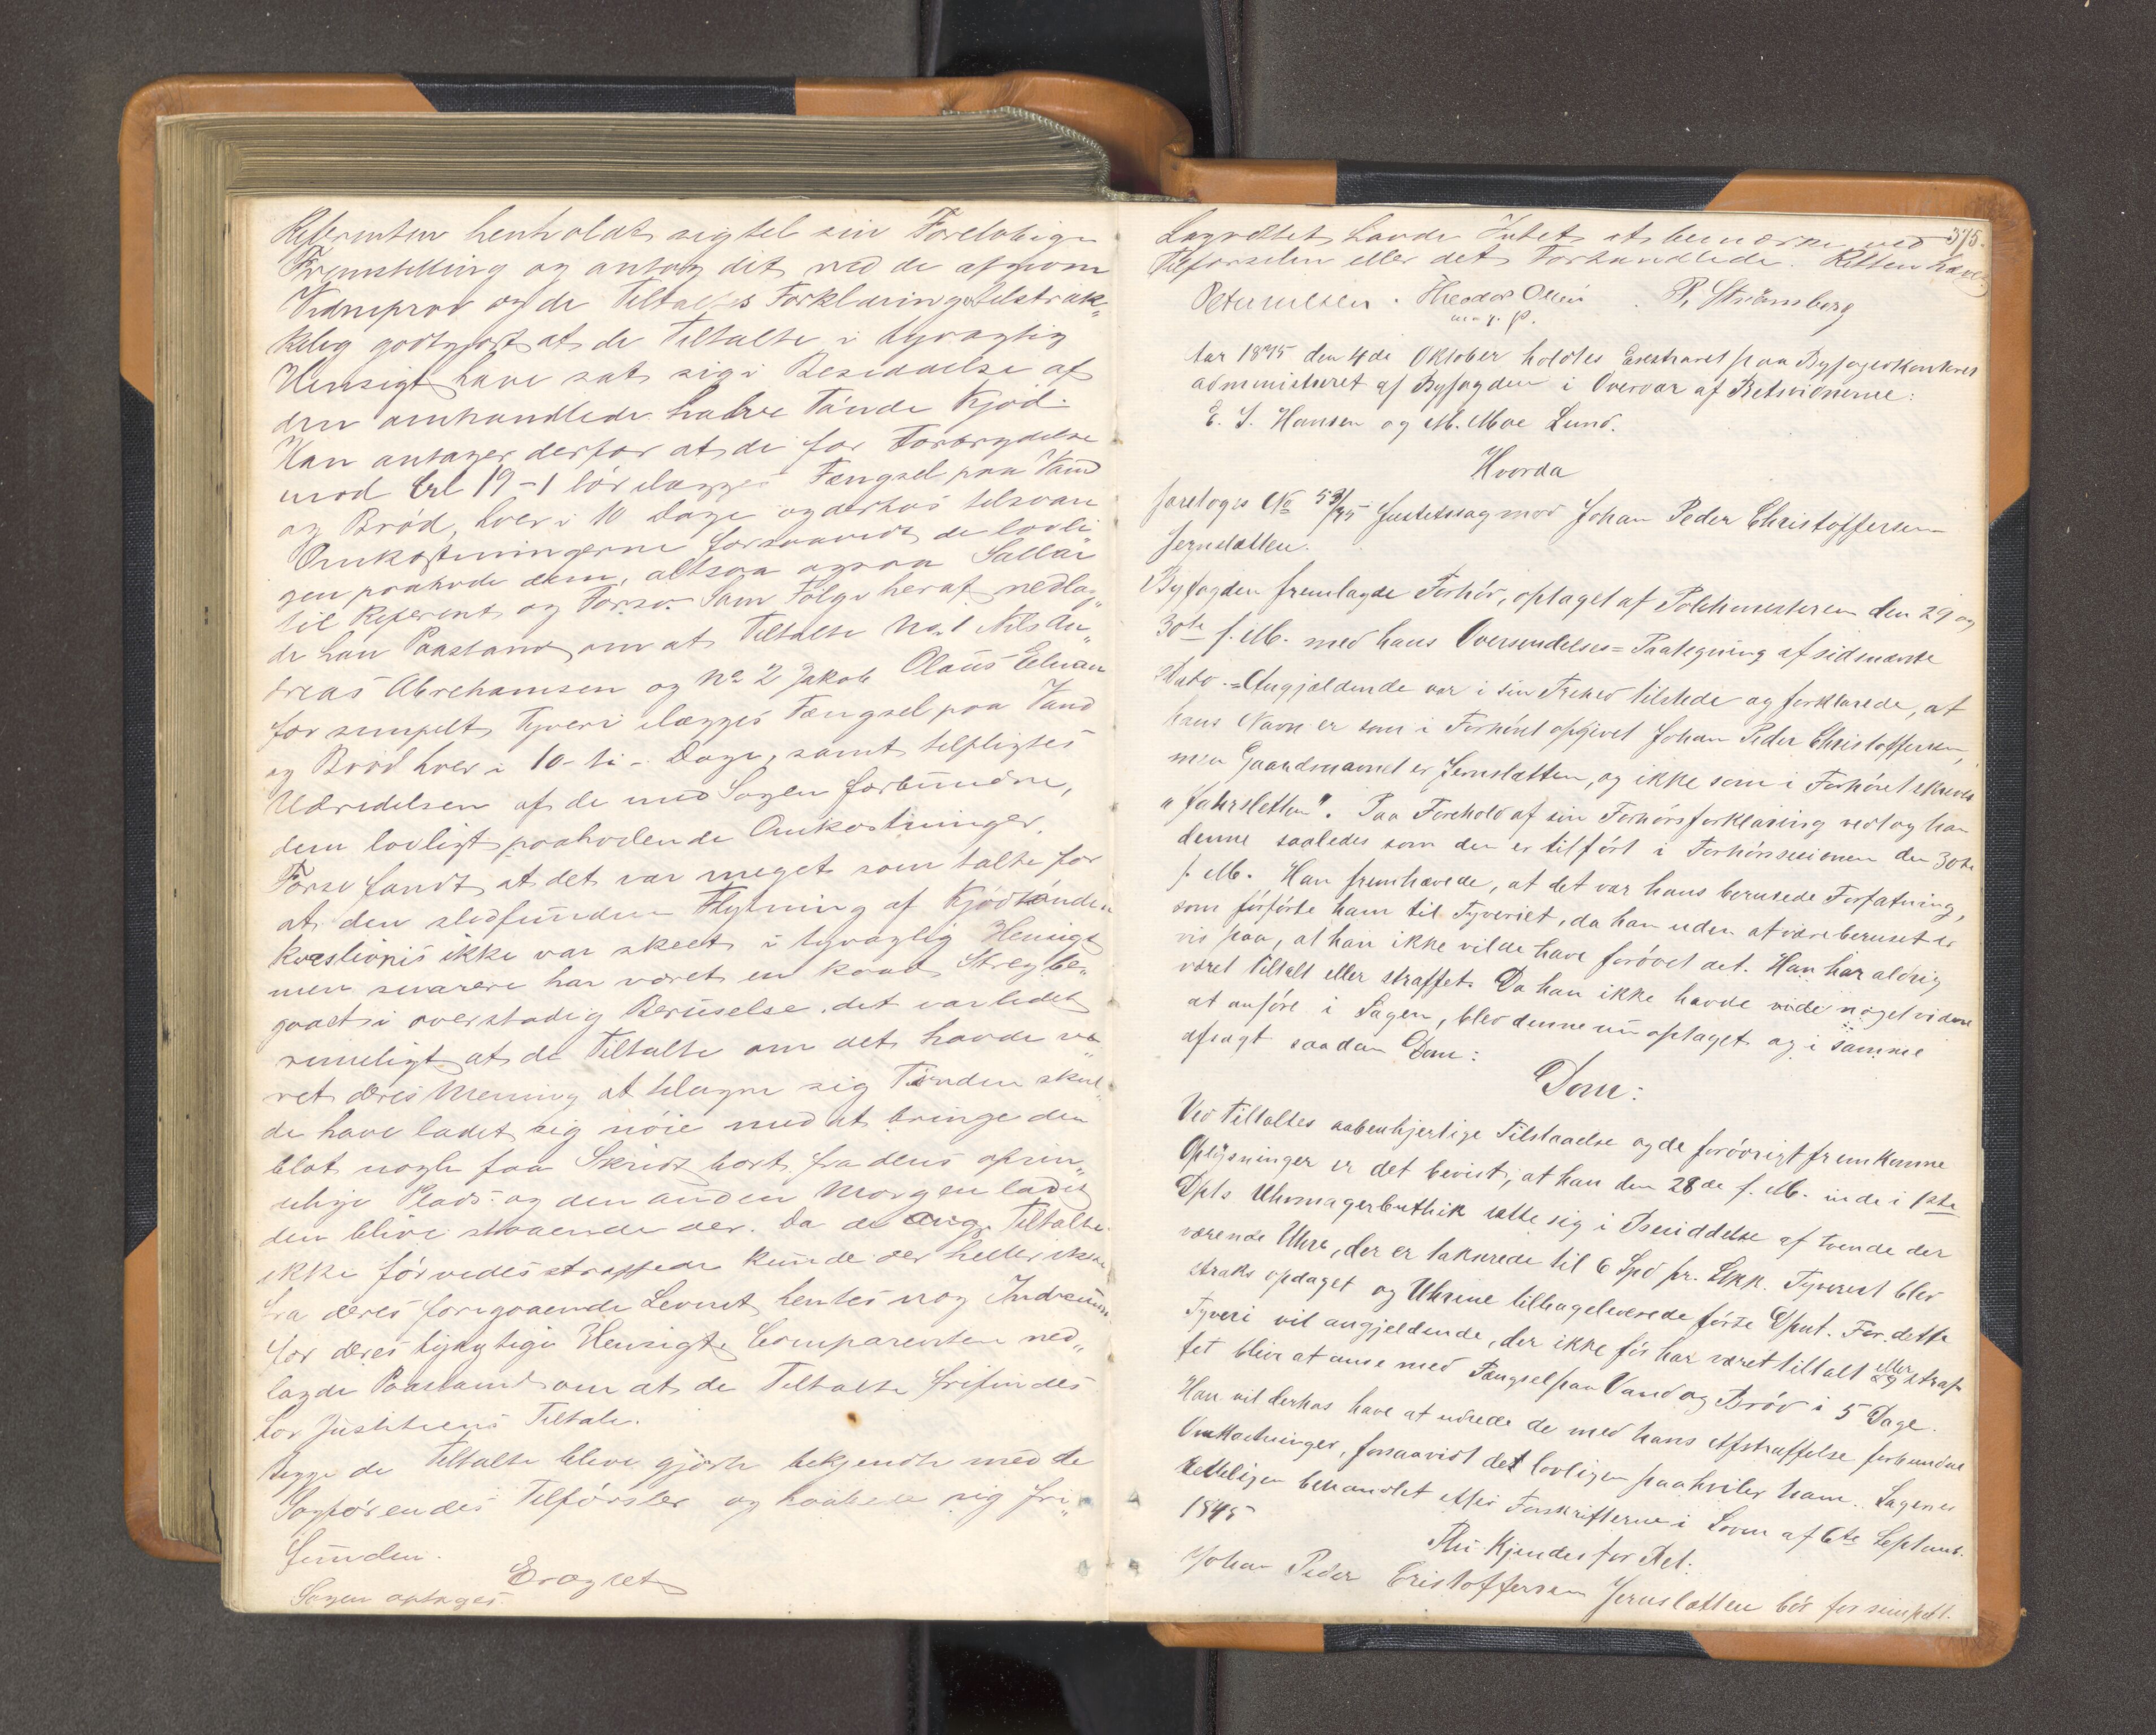 Referenten henholdt sig til sin Foreløbige
Fremstilling og antog det ved de afgivne
Vidneprov og de Tiltaltes Forklaringer tilstræk„
kelig godtgjort at de Tiltalte i tyvagtig
Hensigt have sat sig i Besiddelse af
den omhandlede halve Tønde Kjød.
Han antager derfor at de for Forbrydelse
mod Crl 19-1 bør ilægges Fængsel paa Vand
og Brød, hver i 10 Dage og derhos tilsvare
Omkostningerne forsaavidt de lovli
gen paahvile dem, altsaa ogsaa Sallær
til Referent og Forsv. Som Følge heraf nedlag„
de han Paastand om at Tiltalte No. 1 Nils An„
dreas Abrehamsen og No 2 Jakob Olaus
for simpelt Tyveri ilægges Fængsel paa Vand
og Brød hver i 10-ti- Dage, samt tilpligtes
Udredelsen af de med Sagen forbundne,
dem lovligt paahvilende Omkostninger.
Forsv fandt at det var meget som talte for
at den stedfundne Flytning af Kjødtønden
kvæstionis ikke var skeet i tyvagtig Hensigt
men snarere har været en kaad Streg be„
gaaet i overstadig Beruselse. det var lidet
rimeligt at de Tiltalte om det havde væ
ret deres Mening at tilegne sig Tønden skul„
de have ladet sig nøie med at bringe den
blot nogle faa Skridt bort fra dens oprin„
delige Plads og den anden Morgen ladet
den blive staaende der. Da de ang. Tiltalte
ikke før vides straffede kunde der heller ikke
fra deres foregaaende Levnet hentes nog
for deres tyvagtige Hensigt. Comparenten ned„
lagde Paastand om at de Tiltalte frifindes
for Justitiens Tiltale.
Begge de Tiltalte bleve gjorte bekjendte med de
Sagførendes Tilførsler og haabede sig fri„
funden.
Eragtet
Sagen optages.
375.
Lagrettet havde Intet at bemærke ved
Tilførselen eller det Forhandlede. Retten hævet
Petersen. Theodor Olsen P. Strömsberg
m. p. P.
Aar 1875 den 4de Oktober holdtes Extraret paa Byfogedkontoret
administreret af Byfogden i Overvær af Retsvidnerne:
E. S. Hansen og M. Moe Lund.
Hvorda
foretoges No 53/75 Justitssag mod Johan Peder Christoffersen
Jernslætten.
Byfogden fremlagde Forhør, optaget af Politimesteren den 29 og
30te f. M. med hans Oversendelses=Paategning af sidnævnte
Dato.=Angjældende var i sin Frihed tilstede og forklarede, at
hans Navn er som i Forhøret opgivet Johan Peder Christoffersen,
men Gaardsnavnet er Jernslætten, og ikke som i Forhøret skrevet
„Jahrsletten". Paa Forehold af sin Forhørsforklaring vedtog han
denne saaledes som den er tilført i Forhørssessionen den 30te
f. M. Han fremhævede, at det var hans berusede Forfatning,
som forførte ham til Tyveriet, da han uden at være beruset er
vis paa, at han ikke vilde have forøvet det. Han har aldrig
været tiltalt eller straffet. Da han ikke havde vide noget videre
at anføre i Sagen, blev denne nu optaget og i samme
afsagt saadan Dom:
Dom:
Ved Tiltaltes aabenhjertige Tilstaaelse og de forøvrigt fremkomne
Oplysninger er det bevist, at han den 28de f. M. inde i 1ste
Dpts Uhrmagerbuthik satte sig i Besiddelse af tvende der
værende Uhre, der er taxerede til 6 Spd pr. Stkk. Tyveriet blev
straks opdaget og Uhrene tilbageleverede første Dpnt. For dette
Tyveri vil angjeldende, der ikke før har været tiltalt eller straf
fet blive at anse med Fængsel paa Vand og Brød i 5 Dage.
Han vil derhos have at udrede de med hans Afstraffelse forbundne
Omkostninger, forsaavidt det lovligen paahviler ham. Sagen er
retteligen behandlet efter Forskrifterne i Loven af 6te Septemb.
1845
Thi Kjendes for Ret:
Johan Peder Cristoffersen Jernslætten bør for simpelt.